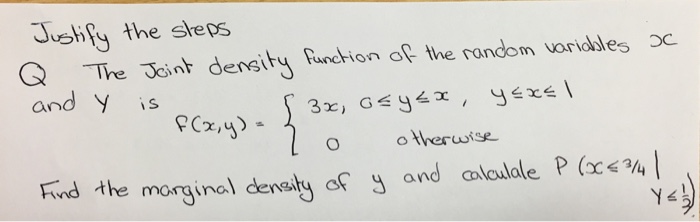 Justify the steps
Q The Joint density function of the random variables x
and Y is
f(x,y) = { 3x, 0≤y≤x, y≤x≤1
0 otherwise
Find the marginal density of y and calculale P (x≤3/4 |
Y≤1/2)